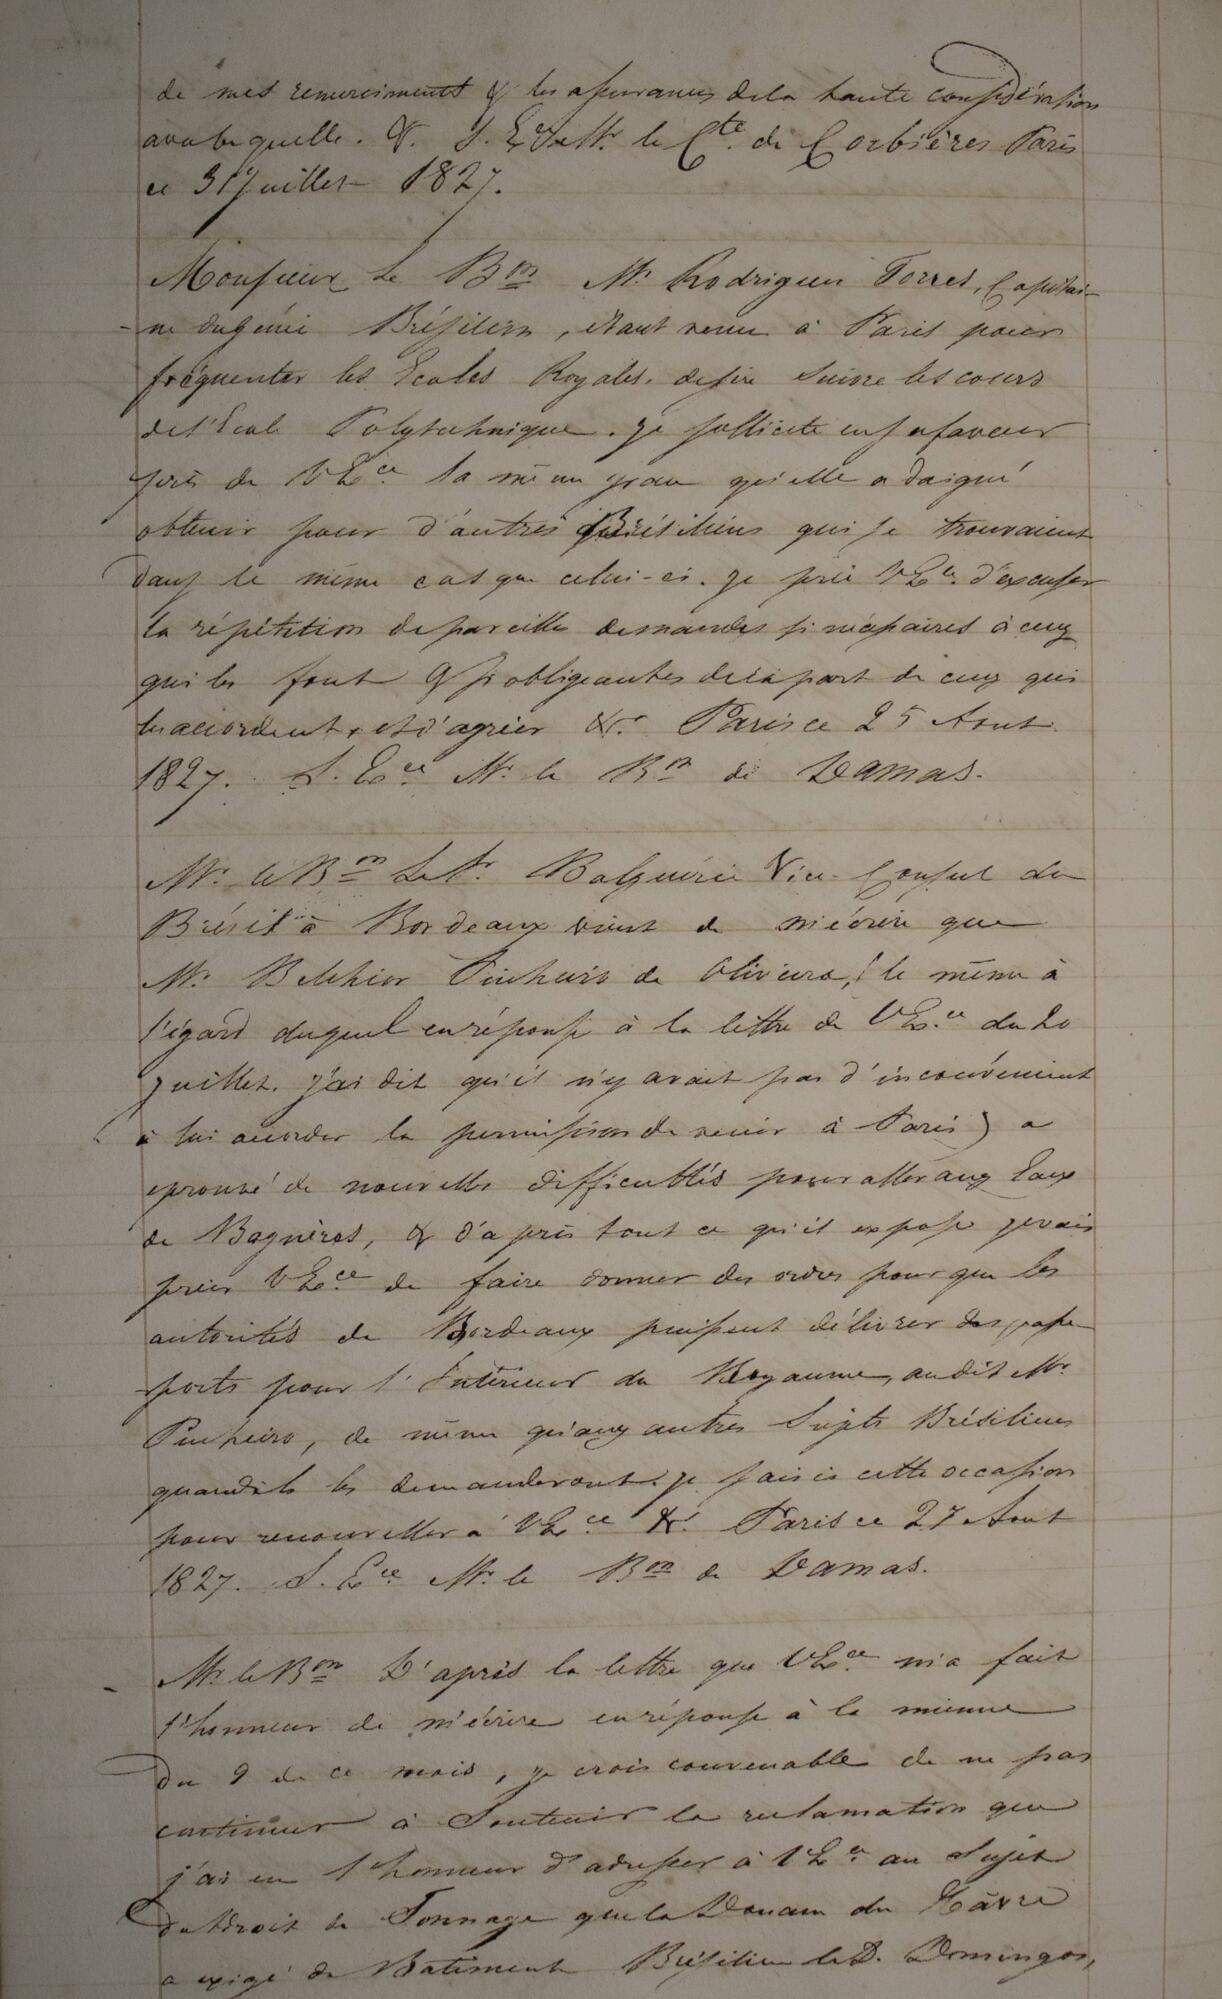 de mes remerciments & les assurances dela haute considération
avec laquelle. &. S. Ex. Mr. le Cte. de Corbières Paris
ce 31 Juillet 1827.
Monsieur le Bon Mr. Rodrigues Torres, Capitai-
ne du génie Brésilien, étant venu à Paris pour
fréquenter les Ecoles Royales. desire suivre les cours
de l'Ecole Polytechnique. je sollicite en sa faveur
près de V Ece. la même grace qu'elle a daigné
obtenir pour d'autres Brésiliens qui se trouvaient
dans le même cas que celui-ci. je prie V Ece. d'excuser
la répétition de pareilles demandes si nécessaires à ceux
qui les font & si obligeantes de la part de ceux qui
les accordent, et d'agréer &c. Paris ce 25 Aout
1827. S. Ece. Mr. le Bon de Damas.
Mr. le Bon Le Sr. Balguérie Vice-Consul du
Brésil à Bordeaux vient de m'écrire que
Mr. Belchior Pinheiro de Oliveira, (le même à
l'égard duquel en réponse à la lettre de V Ece. du 20
Juillet. j'ai dit qu'il n'y avait pas d'inconvénient
à lui accorder la permission de venir à Paris) a
eprouvé de nouvelles difficultés pour aller aux Eaux
de Bagnères, & d'après tout ce qu'il expose je vais
prier V Ece. de faire donner des ordres pour que les
autorités de Bordeaux puissent délivrer des passe-
ports pour l'Intérieur du Royaume, au dit Mr.
Pinheiro, de même qu'aux autres Sujets Brésiliens
quand ils les demanderont. je saisis cette occasion
pour renouveller à V Ece. &. Paris ce 27 Aout
1827. S. Ece. Mr. le Bon de Damas.
Mr. le Bon D'après la lettre que V Ece. m'a fait
l'honneur de m'écrire en réponse à la mienne
du 9 de ce mois, je crois convenable de ne pas
continuer à Soutenir la reclamation que
j'ai eu l'honneur d'adresser à V Ece. au Sujet
du droit de Tonnage que la Douane du Hâvre
a exigé du Batiment Brésilien le D. Domingos,